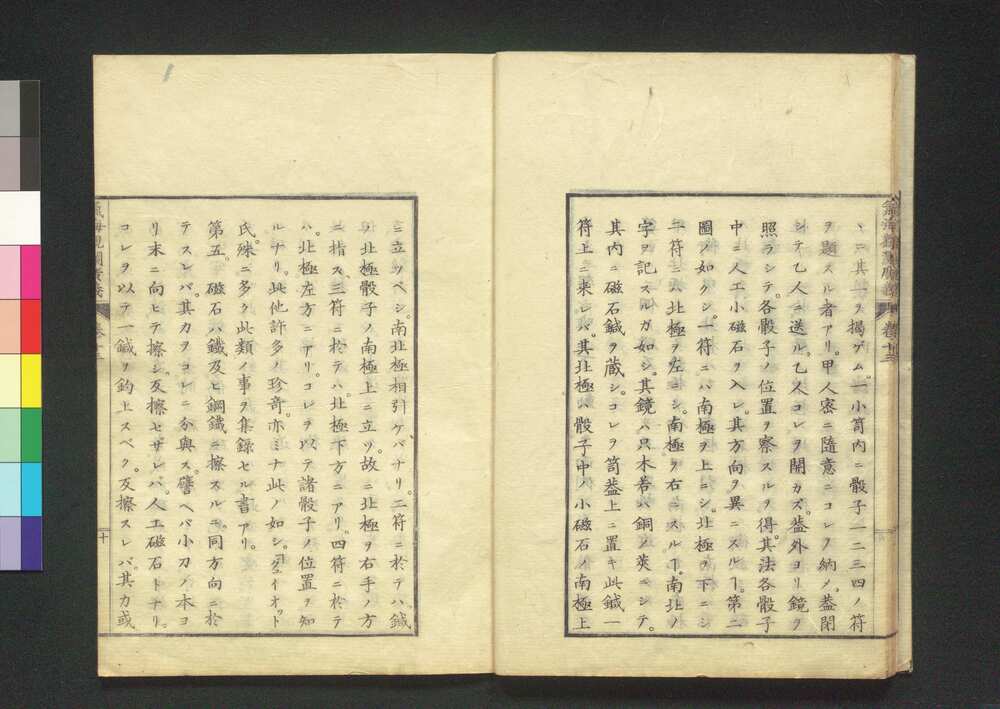 ヽニ其一ヲ揭ゲム。一小笥内ニ骰子一二三四ノ符
ヲ題スル者アリ。甲人密ニ隨意ニコレヲ納ﾉ。葢閉
シテ乙人ニ送ル。乙人コレヲ開カズ。葢外ヨリ鏡ヲ
照ラシテ。各骰子ノ位置ヲ察スルヲ得。其法各骰子
中ニ人工小磁石ヲ入レ。其方向ヲ異ニスルヿ。第二
圖ノ如クシ。一符ニハ南極ヲ上ニシ。北極ヲ下ニシ
二符ニハ北極ヲ左ニシ。南極ヲ右ニスルヿ。南北ノ
字ヲ記スルガ如シ。其鏡ハ只木若ハ銅ノ莢ニシテ。
其内ニ磁石鍼ヲ藏シ。コレヲ笥葢上ニ置キ此鍼一
符上ニ來レバ其北極ハ骰子中ノ小磁石ノ南極上
ニ立ツベシ。南北極相引ケバナリ。二符ニ於テハ。鍼
ノ北極骰子ノ南極上ニ立ツ。故ニ北極ヲ右手ノ方
ニ指ス三符ニ於テハ。北極下方ニアリ。四符ニ於テ
ハ。北極左方ニアリ。コレヲ以テ諸骰子ノ位置ヲ知
ルナリ。此他許多ノ珍奇亦ミナ此ノ如シ。
氏。殊ニ多ク此類ノ事ヲ集録セル書アリ。
第五。磁石ハ鐵及ヒ鋼鐵ニ擦スルニ。同方向ニ於
テスレバ。其力ヲコレニ分與ス。譬ヘバ小刀ノ本ヨ
リ末ニ向ヒテ擦シ。反擦セザレバ。人工磁石トナリ。
コレヲ以テ一鍼ヲ釣上スベク。反擦スレバ。其力或
卷十三
十